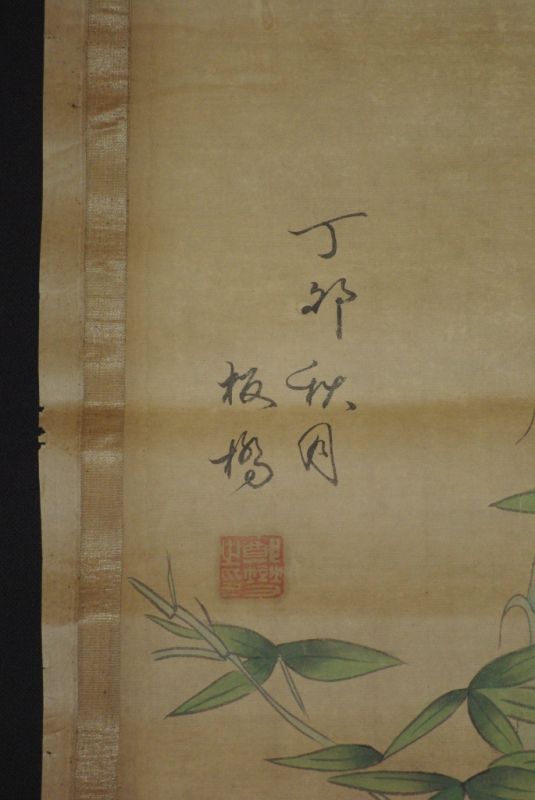 丁卯秋月
板橋